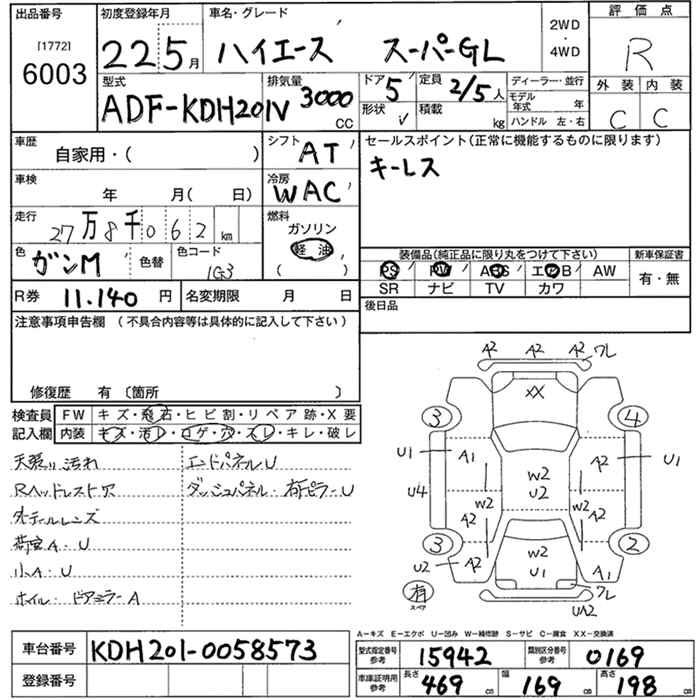 出品番号 初度登録年月 車名・グレード 評価点
[1772]
6003
22 5月 ハイエース スーパーGL 2WD・4WD R
型式 排気量 ドア 定員 ディーラー・並行 外装 内装
ADF-KDH201V 3000 CC 5 2/5人 モデル年式 年 C C
形状 V 積載 kg ハンドル 左・右
車歴 シフト セールスポイント(正常に機能するものに限ります)
自家用・( ) AT キーレス
車検 冷房
年 月( 日) WAC
走行 燃料
27万8千062km ガソリン
軽油
( )
色 色替 色コード 装備品(純品に限り丸をつけて下さい) 新車保証書
ガンM 1G3 PS PW ABS エアB AW 有・無
SR ナビ TV カワ
R券 11.140円 名変期限 月 日 後日品
注意事項申告欄 (不具合内容等は具体的に記入して下さい)
修復歴 有 〔箇所 〕
検査員 FW キズ・飛石・ヒビ割・リペア跡・X要
記入欄 内装 キズ・汚レ・コゲ・穴・スレ・キレ・破レ
天張り汚れ エンドパネルU
Rヘッドレスト穴 ダッシュパネル・右ピラーU
外テールレンズ
荷室A・U
小A・U
ホイル・ドアミラーA
A2 A2 A2 ワレ
XX
3 4
U1 A1 A2 U1
W2
U2
U4 W2 W2
A2 A2
3 2
W2
U2 A2 U1 A1
有 スペア ワレ
UA2
A-キズ E-エクボ U-凹み W-補修跡 S-サビ C-腐食 XX-交換済
車台番号 KDH201-0058573 型式指定番号参考 15942 類別区分番号参考 0169
登録番号 車庫証明用参考 長さ 469cm 幅 169cm 高さ 198cm